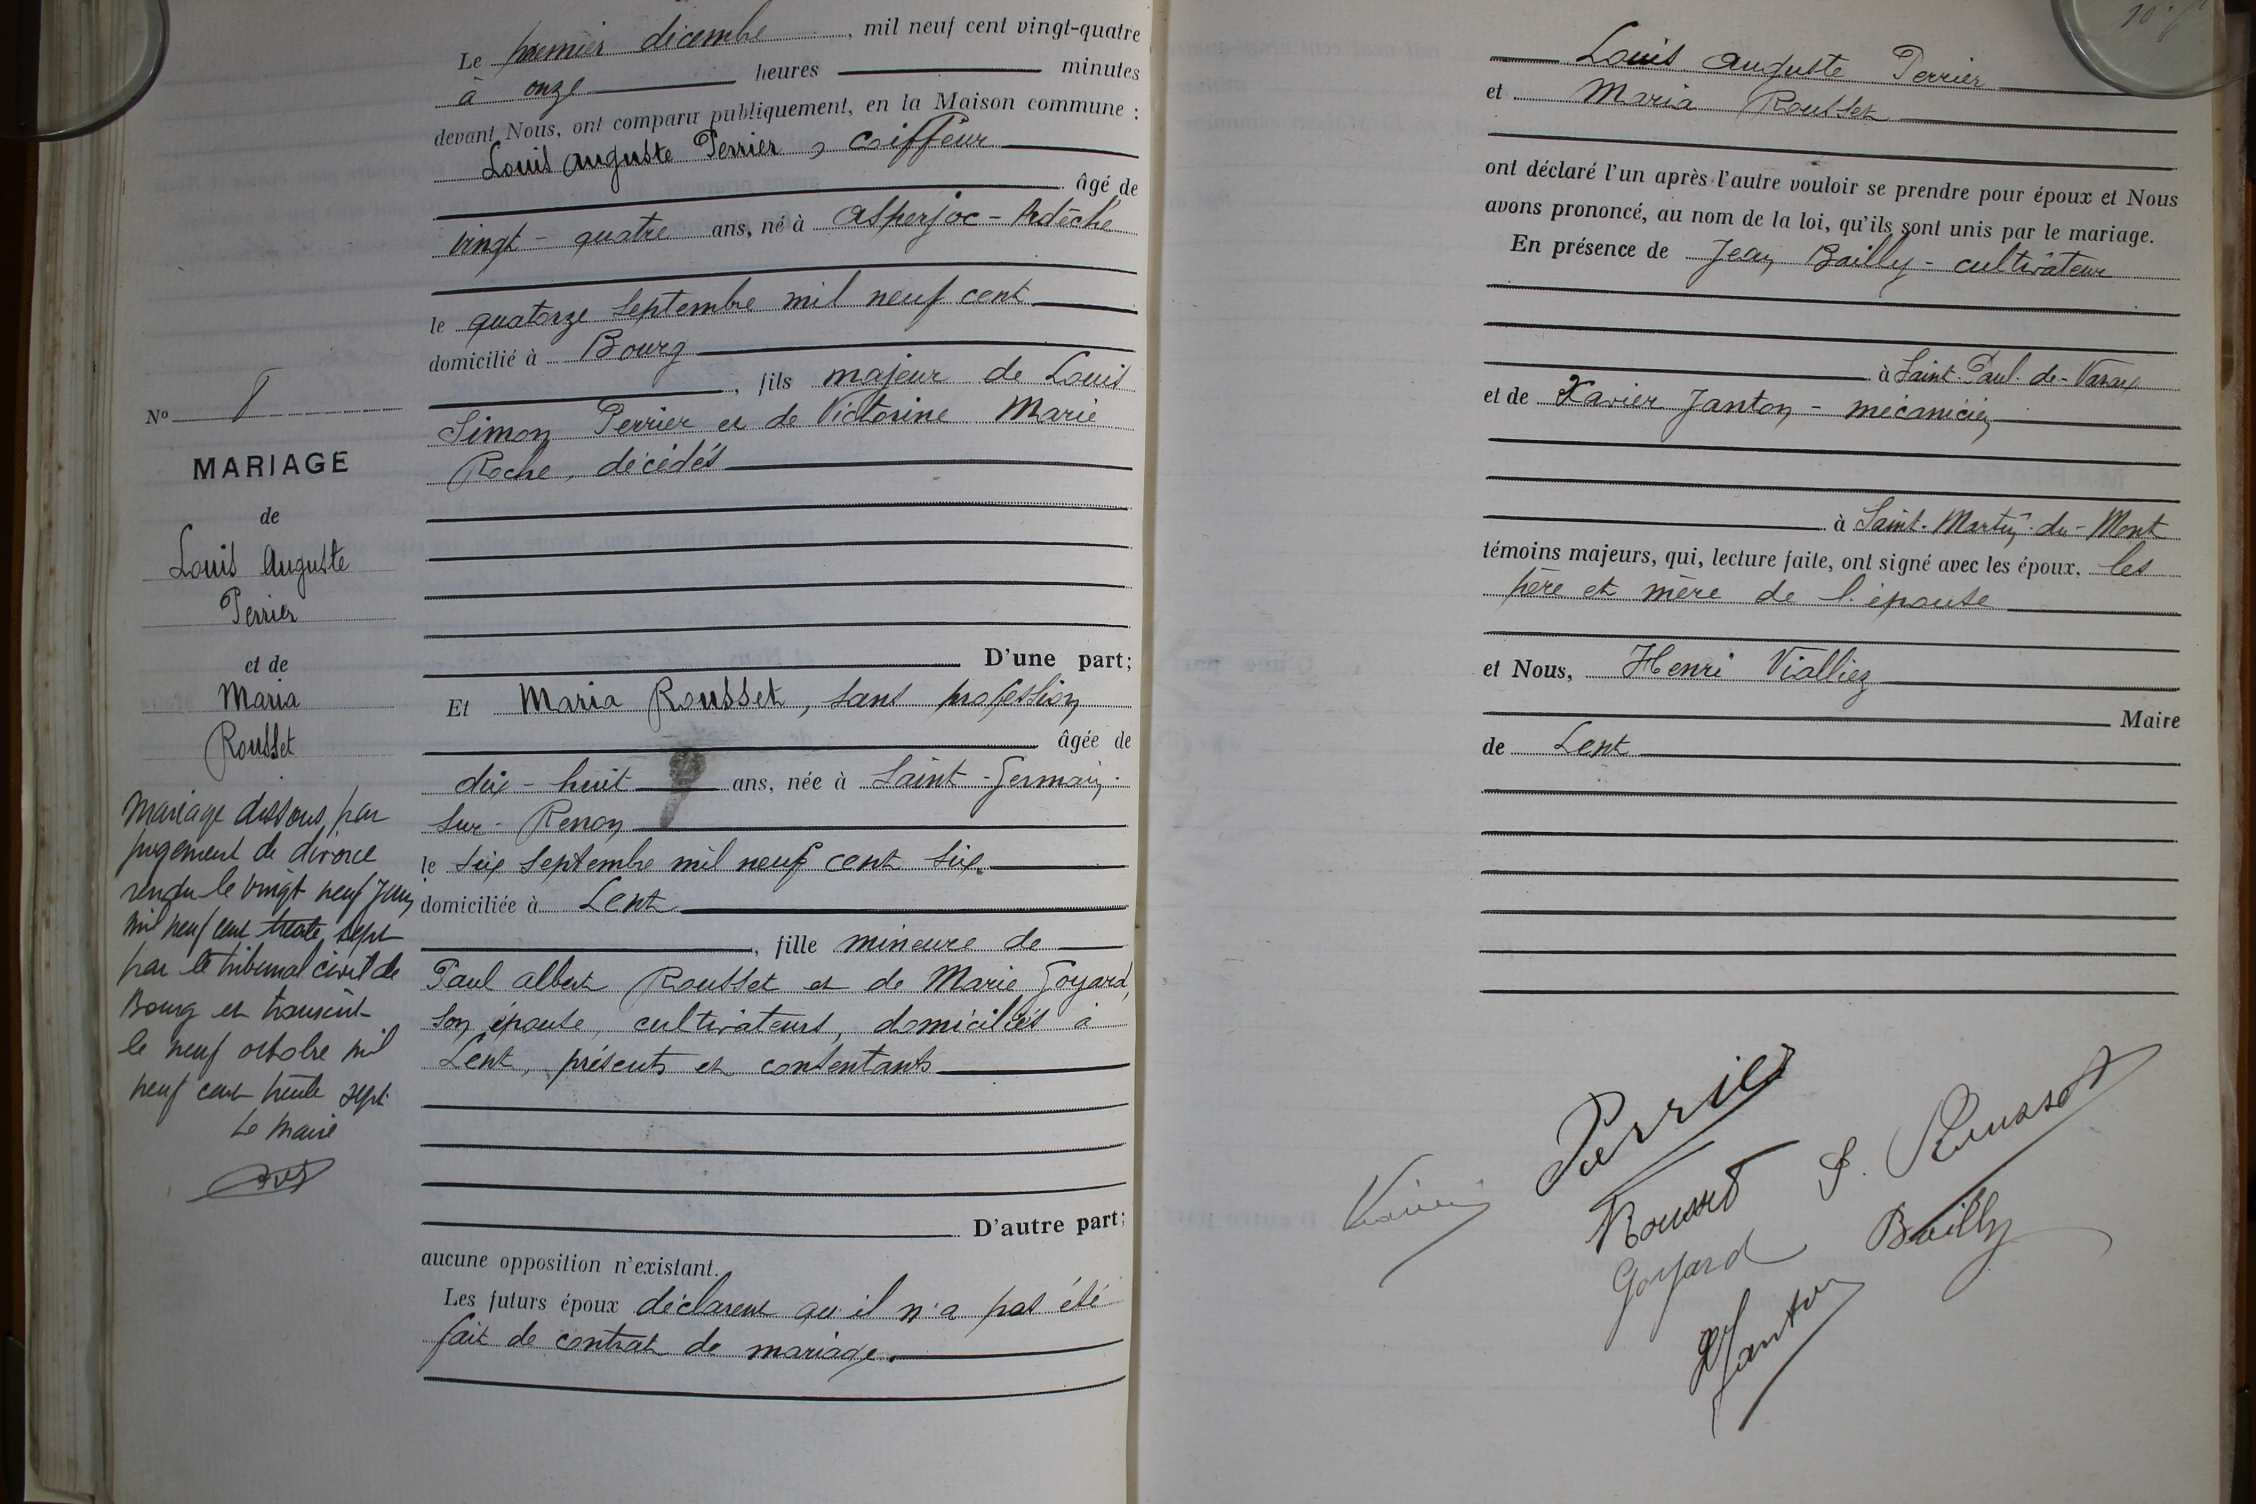 Le premier décembre, mil neuf cent vingt-quatre
à onze heures minutes
devant Nous, ont comparu publiquement, en la Maison commune :
Louis Auguste Perrier, Coiffeur
âgé de
vingt-quatre ans, né à Asperjoc - Ardèche
le quatorze Septembre mil neuf cent
domicilié à Bourg
, fils majeur de Louis
Simon Perrier et de Victorine Marie
Roche, décédés
D'une part;
Et Maria Rousset, sans profession
âgée de
dix-huit ans, née à Saint-Germain-
sur-Renon
le six Septembre mil neuf cent six.
domiciliée à Lent
, fille mineure de
Paul Albert Rousset et de Marie Goyard,
son épouse, cultivateurs, domiciliés à
Lent, présents et consentants
D'autre part;
aucune opposition n'existant.
Les futurs époux déclarent qu'il n'a pas été
fait de contrat de mariage.
No
MARIAGE
de
Louis Auguste
Perrier
et de
Maria
Rousset
Mariage dissous par
jugement de divorce
rendu le vingt neuf Juin
mil neuf cent trente sept
par le tribunal civil de
Bourg et transcrit
le neuf octobre mil
neuf cent trente sept.
Le Maire
Louis Auguste Perrier
et Maria Rousset
ont déclaré l'un après l'autre vouloir se prendre pour époux et Nous
avons prononcé, au nom de la loi, qu'ils sont unis par le mariage.
En présence de Jean Bailly - cultivateur
à Saint-Paul-de-Varax
et de Xavier Janton - mécanicien
à Saint-Martin-du-Mont
témoins majeurs, qui, lecture faite, ont signé avec les époux, les
père et mère de l'épouse
et Nous, Henri Vialliez
Maire
de Lent
Perrier
Rousset
Rousset
Goyard
Bailly
Janton